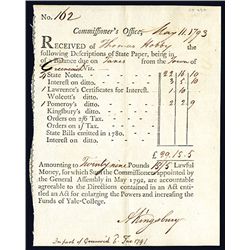 No. 162
Commissioner's Office, May 11. 1793
RECEIVED of Thomas Hobby
the following Descriptions of State Paper, being in
of a balance due on Taxes from the Town of
Greenwich Viz.
State Notes, 22 16 10
Interest on ditto. 3
Lawrence's Certificates for Interest. 1 10
Wolcott's ditto.
Pomeroy's ditto. 2 2 9
Kingsbury's ditto.
Orders on 2/6 Tax
Orders on 1/ Tax.
State Bills emitted in 1780.
Interest on ditto.
£ 29 15 5
Amounting to Twenty nine Pounds 15/5 Lawful
Money, for which Sum the Commissioner appointed by
the General Assembly in May 1792, are annually
accountable to the Directions contained in an Act entitled
an Act for enlarging the Powers and increasing the
Funds of Yale-College.
A Kingsbury
In part of Greenwich Tax 1791